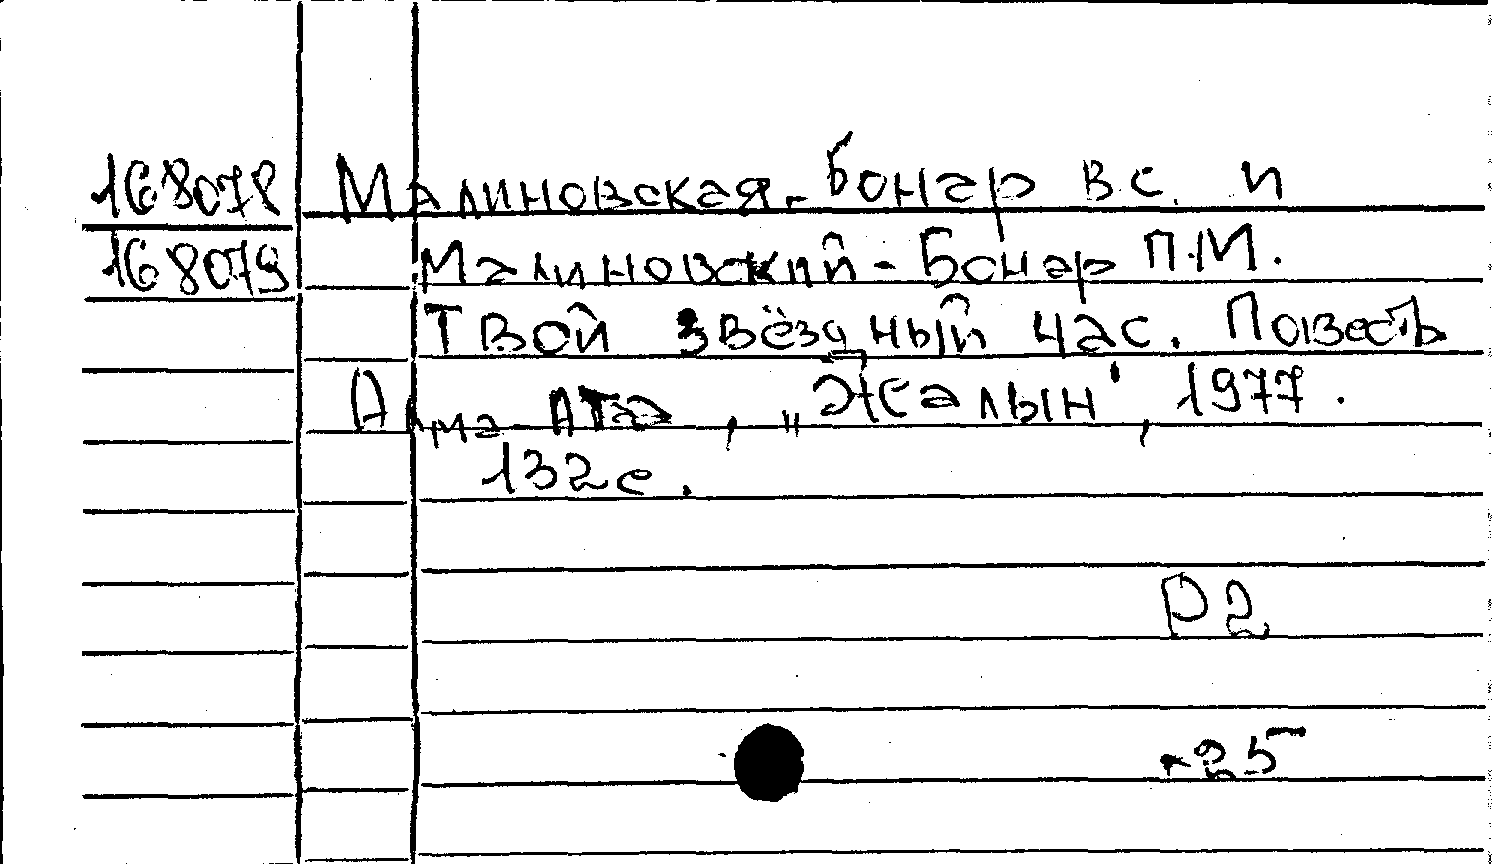 168078 Малиновская-Бонар В.С. и
168079 Малиновский-Бонар П.М.
Твой звёздный час. Повесть
Алма-Ата, „Жалын", 1977.
132с.
Р2
-25